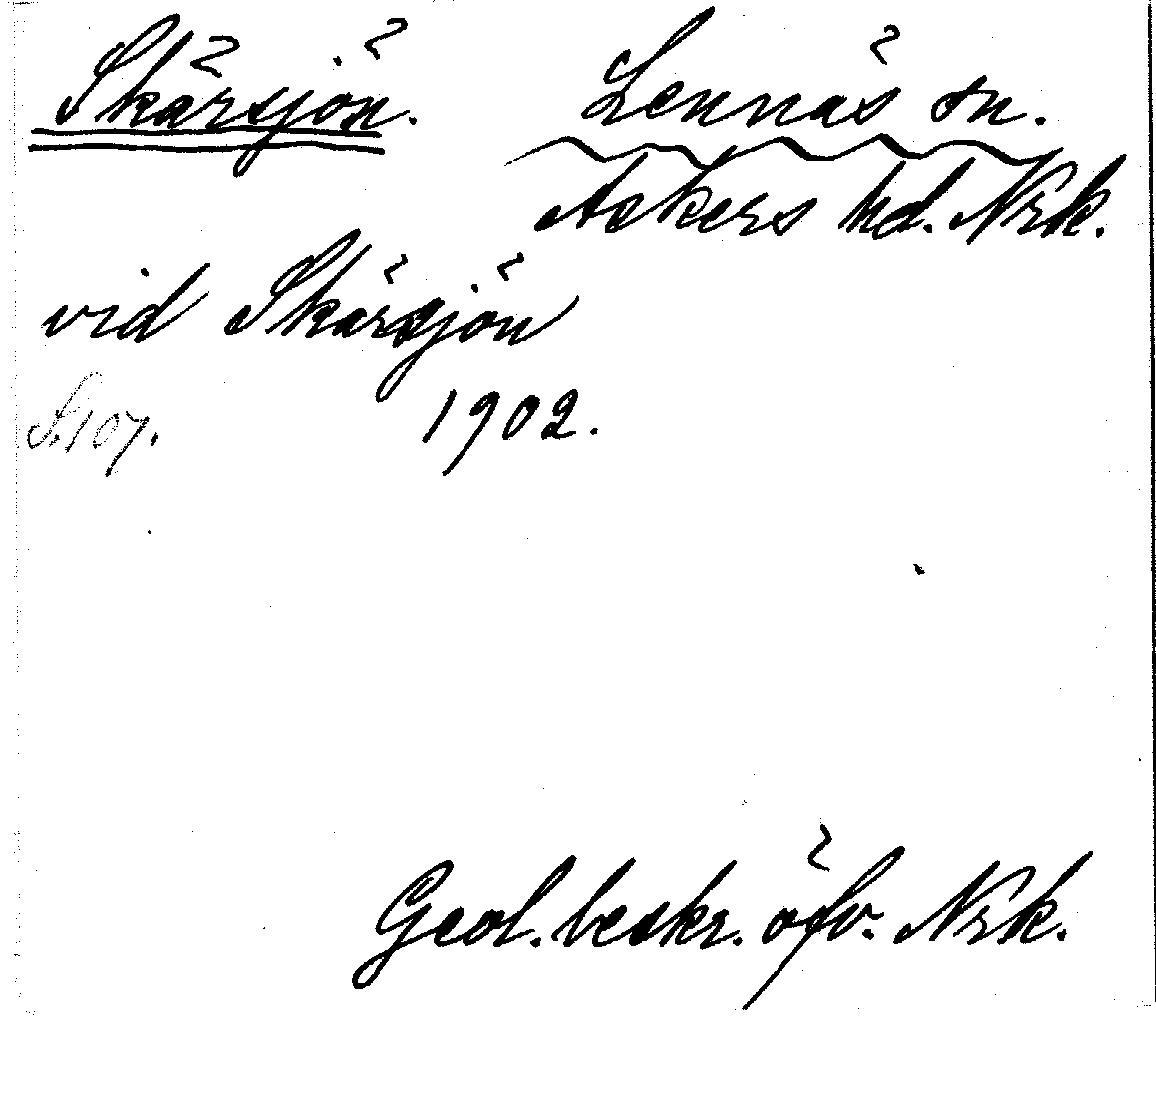 Skärsjön. Lennäs sn.
Askers hd. Nrk.
vid Skärsjön
S. 107. 1902.
Geol. beskr. öfv. Nrk.